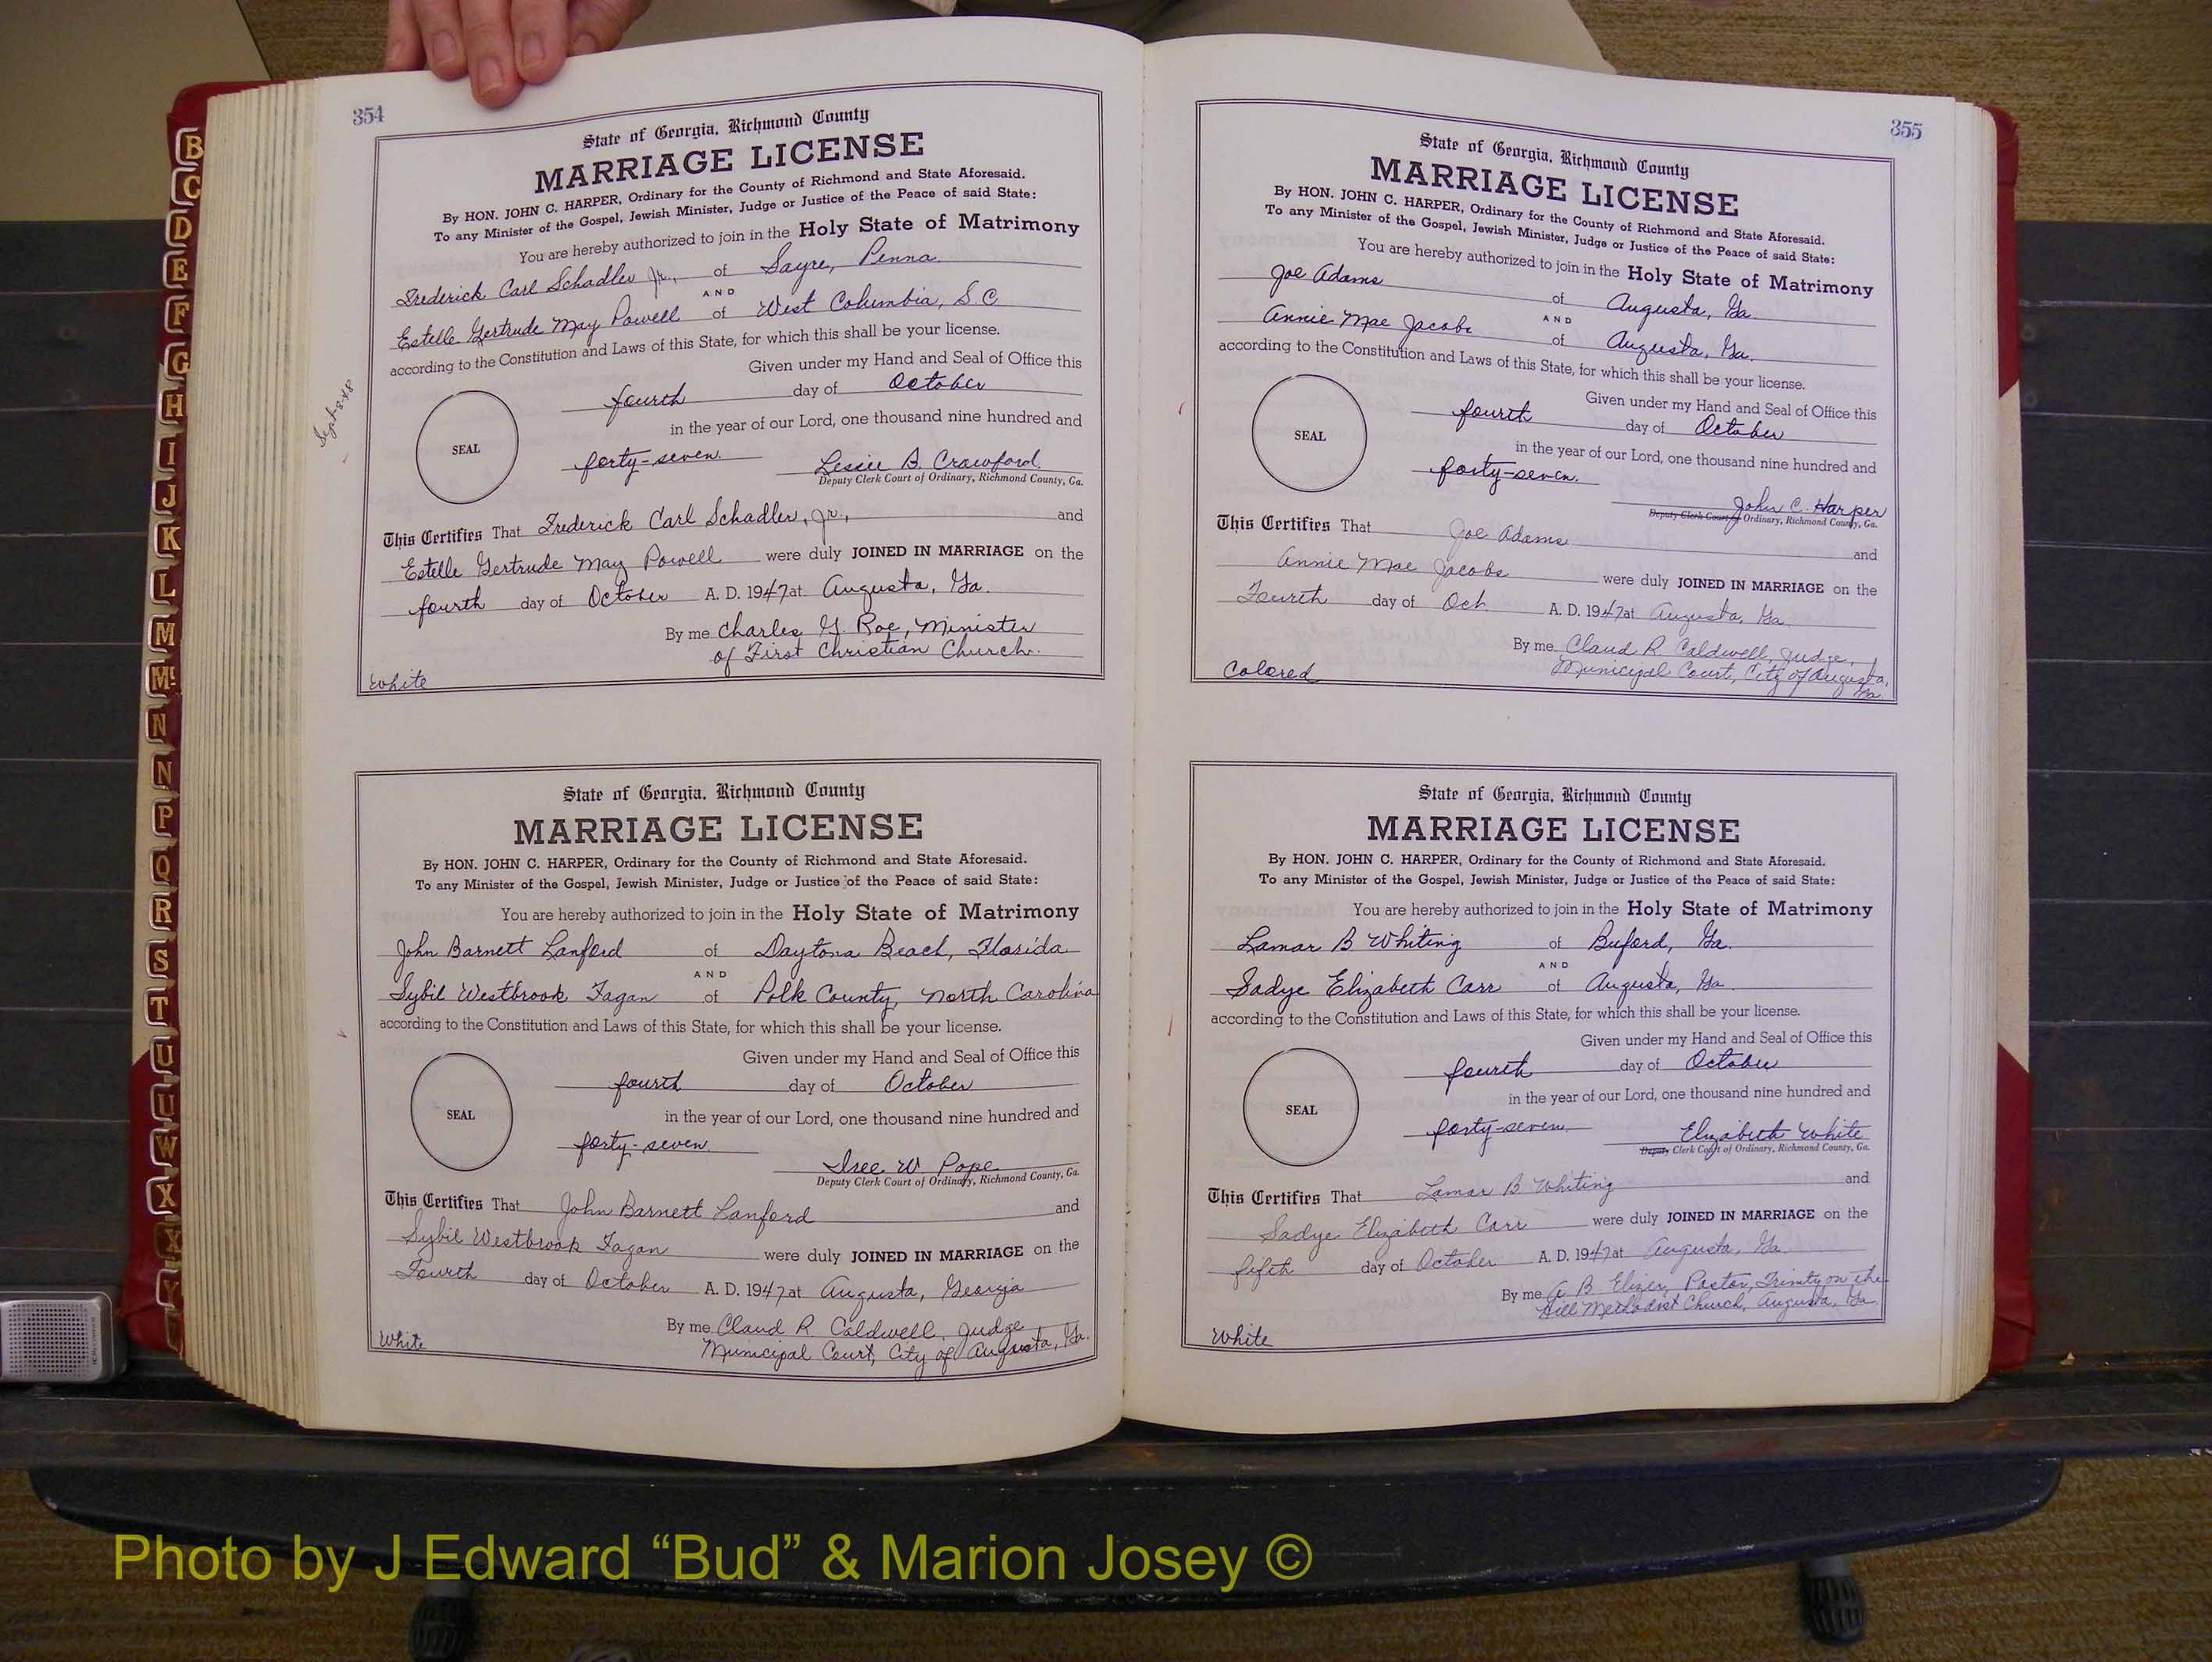 354
State of Georgia, Richmond County
MARRIAGE LICENSE
By HON. JOHN C. HARPER, Ordinary for the County of Richmond and State Aforesaid.
To any Minister of the Gospel, Jewish Minister, Judge or Justice of the Peace of said State:
You are hereby authorized to join in the Holy State of Matrimony
Frederick Carl Schadler Jr., of Sayre, Penna.
AND
Estelle Gertrude May Powell of West Columbia, S C
according to the Constitution and Laws of this State, for which this shall be your license.
Given under my Hand and Seal of Office this
fourth day of October
in the year of our Lord, one thousand nine hundred and
SEAL
forty-seven. B. Crawford.
Deputy Clerk Court of Ordinary, Richmond County, Ga.
This Certifies That Frederick Carl Schadler, Jr., and
Estelle Gertrude May Powell were duly JOINED IN MARRIAGE on the
fourth day of October A. D. 1947 at Augusta, Ga.
By me Charles G. Roe, Minister
of First Christian Church.
White
State of Georgia, Richmond County
MARRIAGE LICENSE
By HON. JOHN C. HARPER, Ordinary for the County of Richmond and State Aforesaid.
To any Minister of the Gospel, Jewish Minister, Judge or Justice of the Peace of said State:
You are hereby authorized to join in the Holy State of Matrimony
John Barnett Lanford of Daytona Beach, Florida
AND
Sybil Westbrook Fagan of Polk County, North Carolina
according to the Constitution and Laws of this State, for which this shall be your license.
Given under my Hand and Seal of Office this
fourth day of October
SEAL
in the year of our Lord, one thousand nine hundred and
forty-seven. W. Pope
Deputy Clerk Court of Ordinary, Richmond County, Ga.
This Certifies That John Barnett Lanford and
Sybil Westbrook Fagan were duly JOINED IN MARRIAGE on the
Fourth day of October A. D. 1947 at Augusta, Georgia
By me Claud R. Caldwell, Judge
Municipal Court, City of Augusta, Ga.
White
355
State of Georgia, Richmond County
MARRIAGE LICENSE
By HON. JOHN C. HARPER, Ordinary for the County of Richmond and State Aforesaid.
To any Minister of the Gospel, Jewish Minister, Judge or Justice of the Peace of said State:
You are hereby authorized to join in the Holy State of Matrimony
Joe Adams of Augusta, Ga.
AND
Annie Mae Jacobs of Augusta, Ga.
according to the Constitution and Laws of this State, for which this shall be your license.
Given under my Hand and Seal of Office this
fourth day of October
SEAL
in the year of our Lord, one thousand nine hundred and
forty-seven.
John C. Harper
Deputy Clerk Court of Ordinary, Richmond County, Ga.
This Certifies That Joe Adams and
Annie Mae Jacobs were duly JOINED IN MARRIAGE on the
Fourth day of Oct. A. D. 1947 at Augusta, Ga
By me Claud R. Caldwell, Judge,
Municipal Court, City of Augusta,
Ga.
Colored
State of Georgia, Richmond County
MARRIAGE LICENSE
By HON. JOHN C. HARPER, Ordinary for the County of Richmond and State Aforesaid.
To any Minister of the Gospel, Jewish Minister, Judge or Justice of the Peace of said State:
You are hereby authorized to join in the Holy State of Matrimony
Lamar B Whiting of Buford, Ga.
AND
Sadye Elizabeth Carr of Augusta, Ga.
according to the Constitution and Laws of this State, for which this shall be your license.
Given under my Hand and Seal of Office this
fourth day of October
SEAL
in the year of our Lord, one thousand nine hundred and
forty-seven. Elizabeth White
Deputy Clerk Court of Ordinary, Richmond County, Ga.
This Certifies That Lamar B Whiting and
Sadye Elizabeth Carr were duly JOINED IN MARRIAGE on the
fifth day of October A. D. 1947 at Augusta, Ga.
By me A B Elizer, Pastor, Trinity on the
Hill Methodist Church, Augusta, Ga.
White
B
C
D
E
F
G
H
I
J
K
L
M
Mc
N
N
P
Q
R
S
T
U
U
W
X
X
Y
Photo by J Edward “Bud” & Marion Josey ©